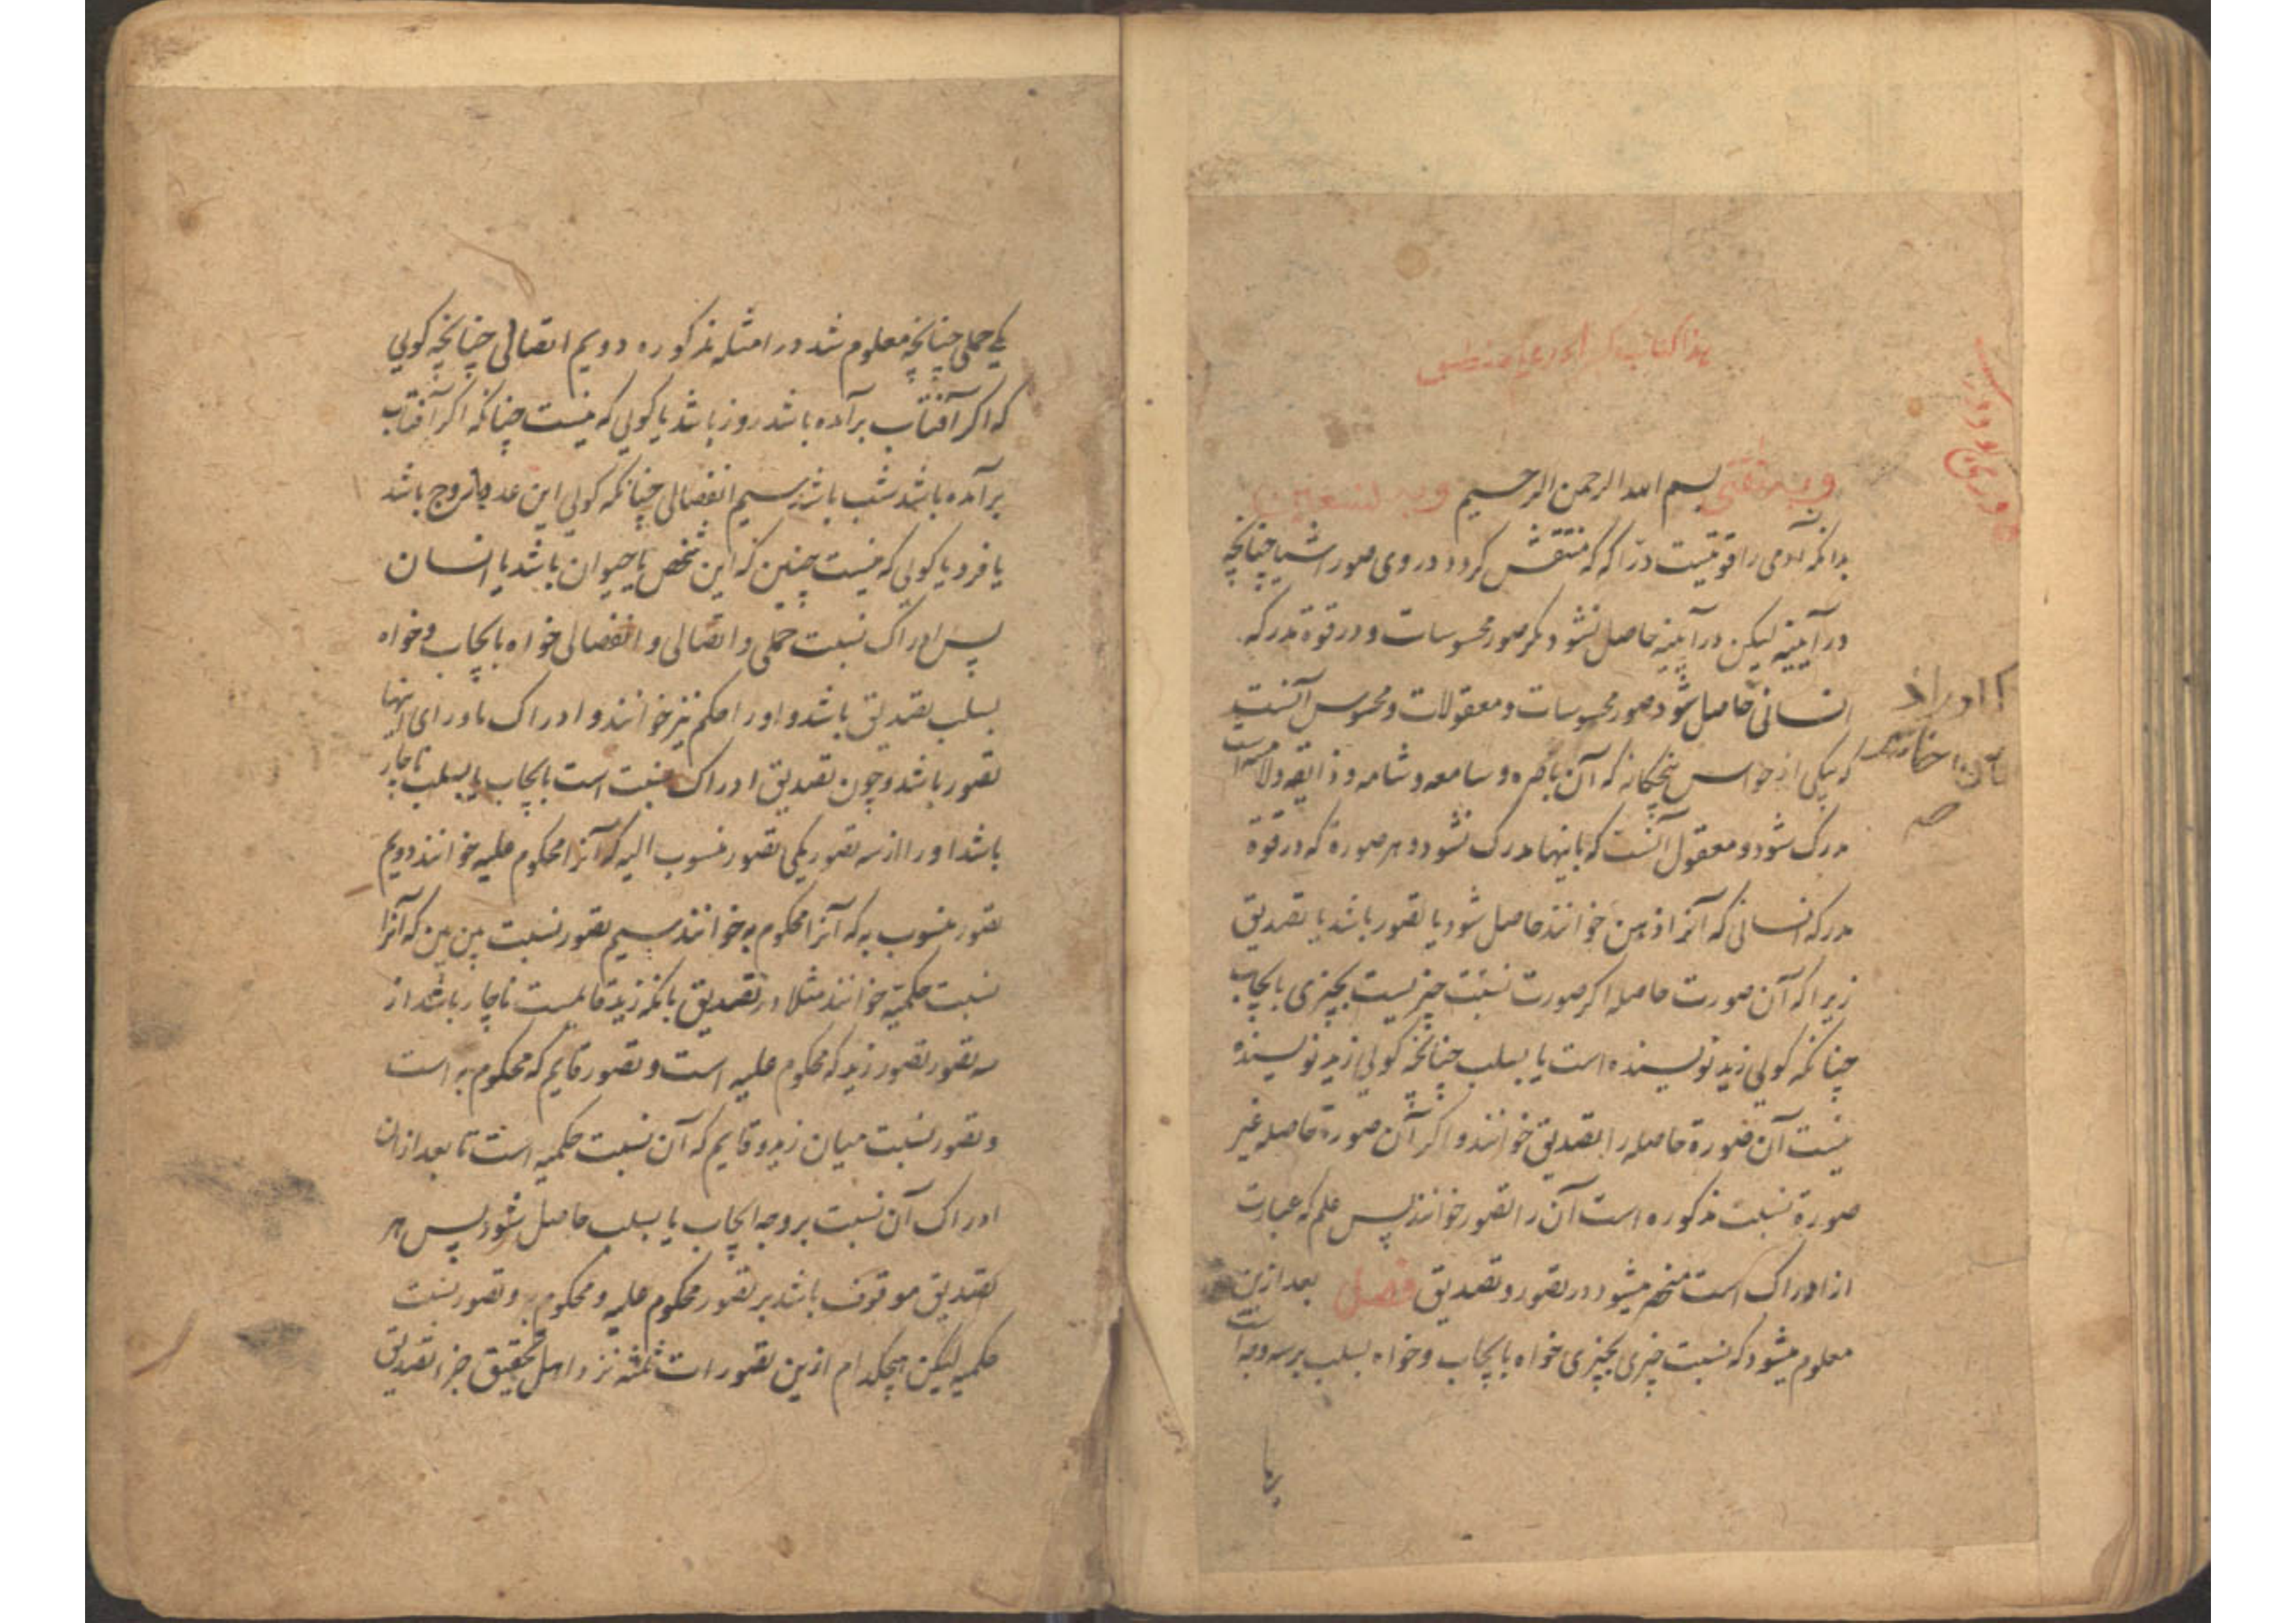 هذا کتاب کبرا در علم منطق
وبه ثقتی بسم الله الرحمن الرحیم وبه نستعین
بدانکه آدمی را قوتیست درّاکه که منتقش کردد در وی صور اشیا چنانچه
در آیینه لیکن در آیینه حاصل نشود مکر صور محسوسات و در قوة مدرکه
انسانی حاصل شود صور محسوسات و معقولات و محسوس آنست
که بیکی از حواس پنجکانه که آن باصره و سامعه و شامه و ذایقه و لامسه است
مدرک شود و معقول آنست که باینها مدرک نشود و هر صورة که در قوة
مدرکه انسانی که آنرا ذهن خوانند حاصل شود یا تصور باشد یا تصدیق
زیرا که آن صورت حاصله اکر صورت نسبت چیزیست بچیزی بایجاب
چنانکه کویی زید نویسنده است یا بسلب چنانچه کویی زید نویسنده
نیست آن صورة حاصله را تصدیق خوانند و اکر آن صورة حاصله غیر
صورة نسبت مذکوره است آن را تصور خوانند پس علم که عبارت
از ادراک است منحصر میشود در تصور و تصدیق فصل بعد ازین
معلوم میشود که نسبت چیزی بچیزی خواه بایجاب و خواه بسلب بر سه وجه است
یکی حملی چنانچه معلوم شد در امثله مذکوره دویم اتصالی چنانچه کویی
که اکر آفتاب برآمده باشد روز باشد یا کویی که نیست چنانکه اکر آفتاب
برآمده باشد شب باشد سیم انفصالی چنانکه کویی این عدد یا زوج باشد
یا فرد یا کویی که نیست چنین که این شخص یا حیوان باشد یا انسان
پس ادراک نسبت حملی و اتصالی و انفصالی خواه بایجاب و خواه
بسلب تصدیق باشد و او را حکم نیز خوانند و ادراک ماورای اینها
تصور باشد و چون تصدیق ادراک نسبت است بایجاب یا بسلب ناچار
باشد او را از سه تصور یکی تصور منسوب الیه که آنرا محکوم علیه خوانند دویم
تصور منسوب به که آنرا محکوم به خوانند سیم تصور نسبت بین بین که آنرا
نسبت حکمیه خوانند مثلا در تصدیق بانکه زید قایمست ناچار باشد از
سه تصور تصور زید که محکوم علیه است و تصور قایم که محکوم به است
و تصور نسبت میان زید و قایم که آن نسبت حکمیه است تا بعد ازان
ادراک آن نسبت بر وجه ایجاب یا بسلب حاصل شود پس هر
تصدیق موقوف باشد بر تصور محکوم علیه و محکوم به و تصور نسبت
حکمیه لیکن هیچکدام ازین تصورات ثلثه نزد اهل تحقیق جزء تصدیق